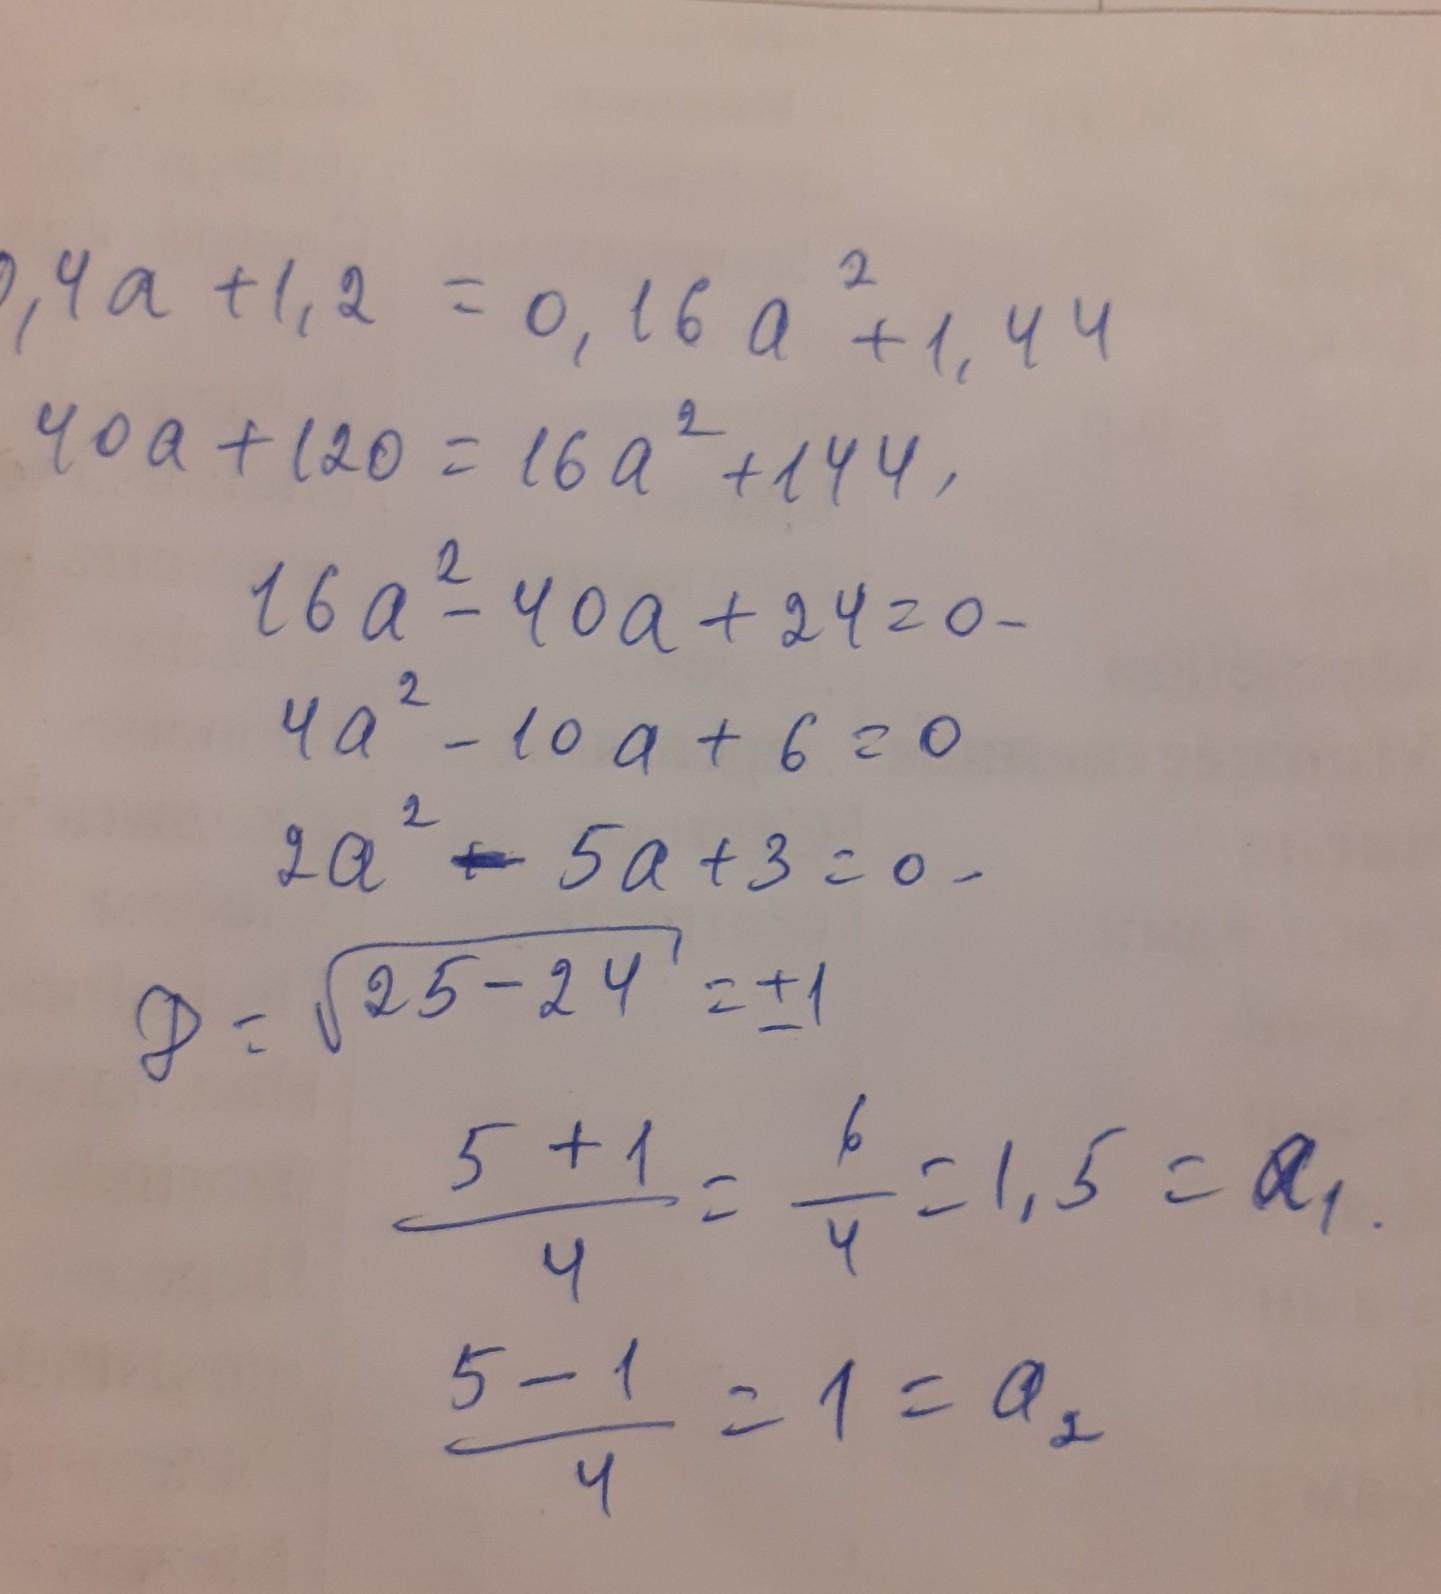 0,4a + 1,2 = 0,16a² + 1,44
40a + 120 = 16a² + 144,
16a² - 40a + 24 = 0 -
4a² - 10a + 6 = 0
2a² - 5a + 3 = 0 -
D = √25-24 = ±1
5+1/4 = 6/4 = 1,5 = a₁.
5-1/4 = 1 = a₂